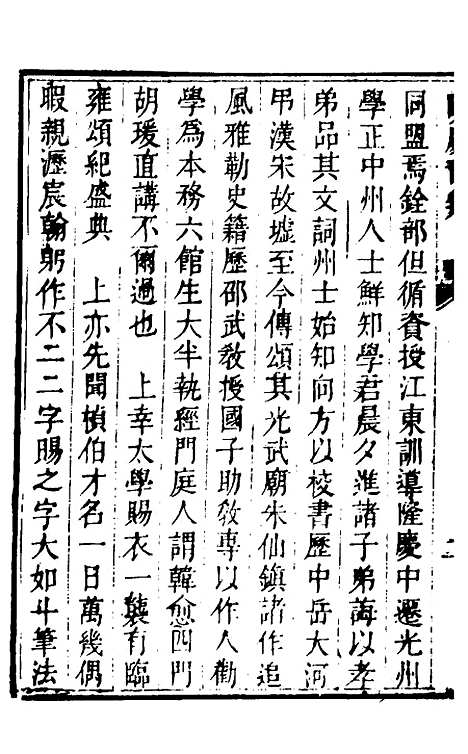 同盟焉銓部但循資授江東訓導隆慶中遷光州
學正中州人士鮮知學君晨夕進諸子弟誨以孝
弟品其文詞州士始知向方以校書歷中岳大河
弔漢宋故墟至今傳頌其光武廟朱仙鎮諸作追
風雅勒史籍歷邵武敎授國子助敎專以作人勸
學爲本務六館生大半執經門庭人謂韓愈四門
胡瑗直講不爾過也　上幸太學賜衣一襲有臨
雍頌紀盛典　上亦先聞楨伯才名一日萬幾偶
暇親灑宸翰躬作不二二字賜之字大如斗筆法